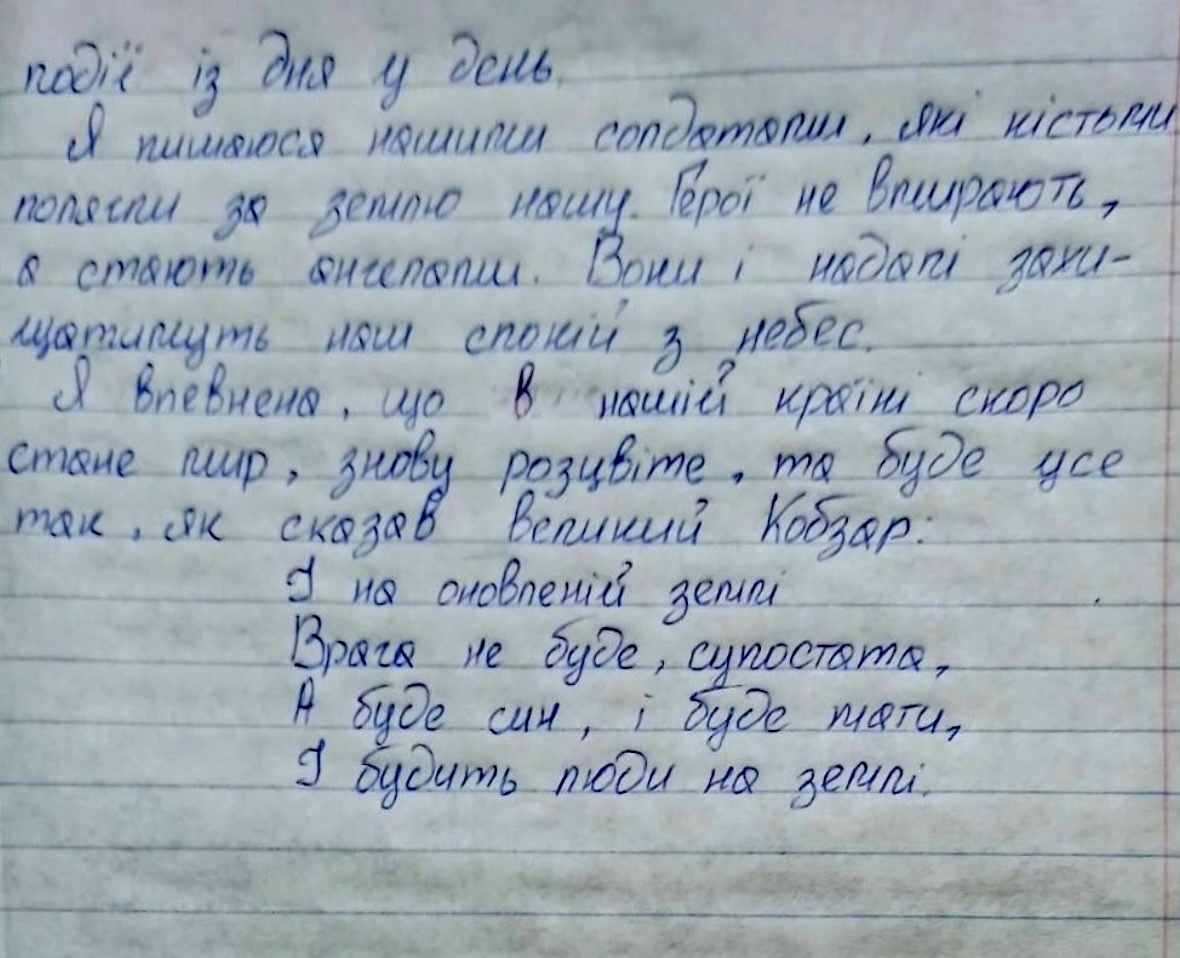 події із дня у день.
Я пишаюся нашими солдатами, які кістьми
полягли за землю нашу. Герої не вмирають,
а стають ангелами. Вони і надалі захи-
щатимуть наш спокій з небес.
Я впевнена, що в нашій країні скоро
стане мир, знову розцвіте, та буде усе
так, як сказав Великий Кобзар:
І на оновленій землі
Врага не буде, супостата,
А буде син, і буде мати,
І будить люди на землі.